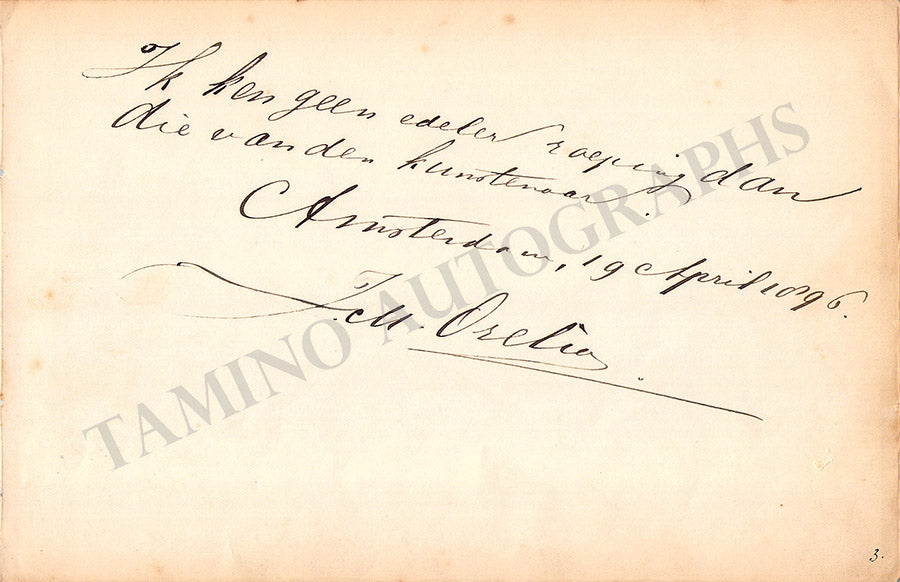 Ik ken geen edeler roeping dan
die van den kunstenaar.
Amsterdam, 19 April 1896.
J.M. Orelio.
TAMINO AUTOGRAPHS
3.